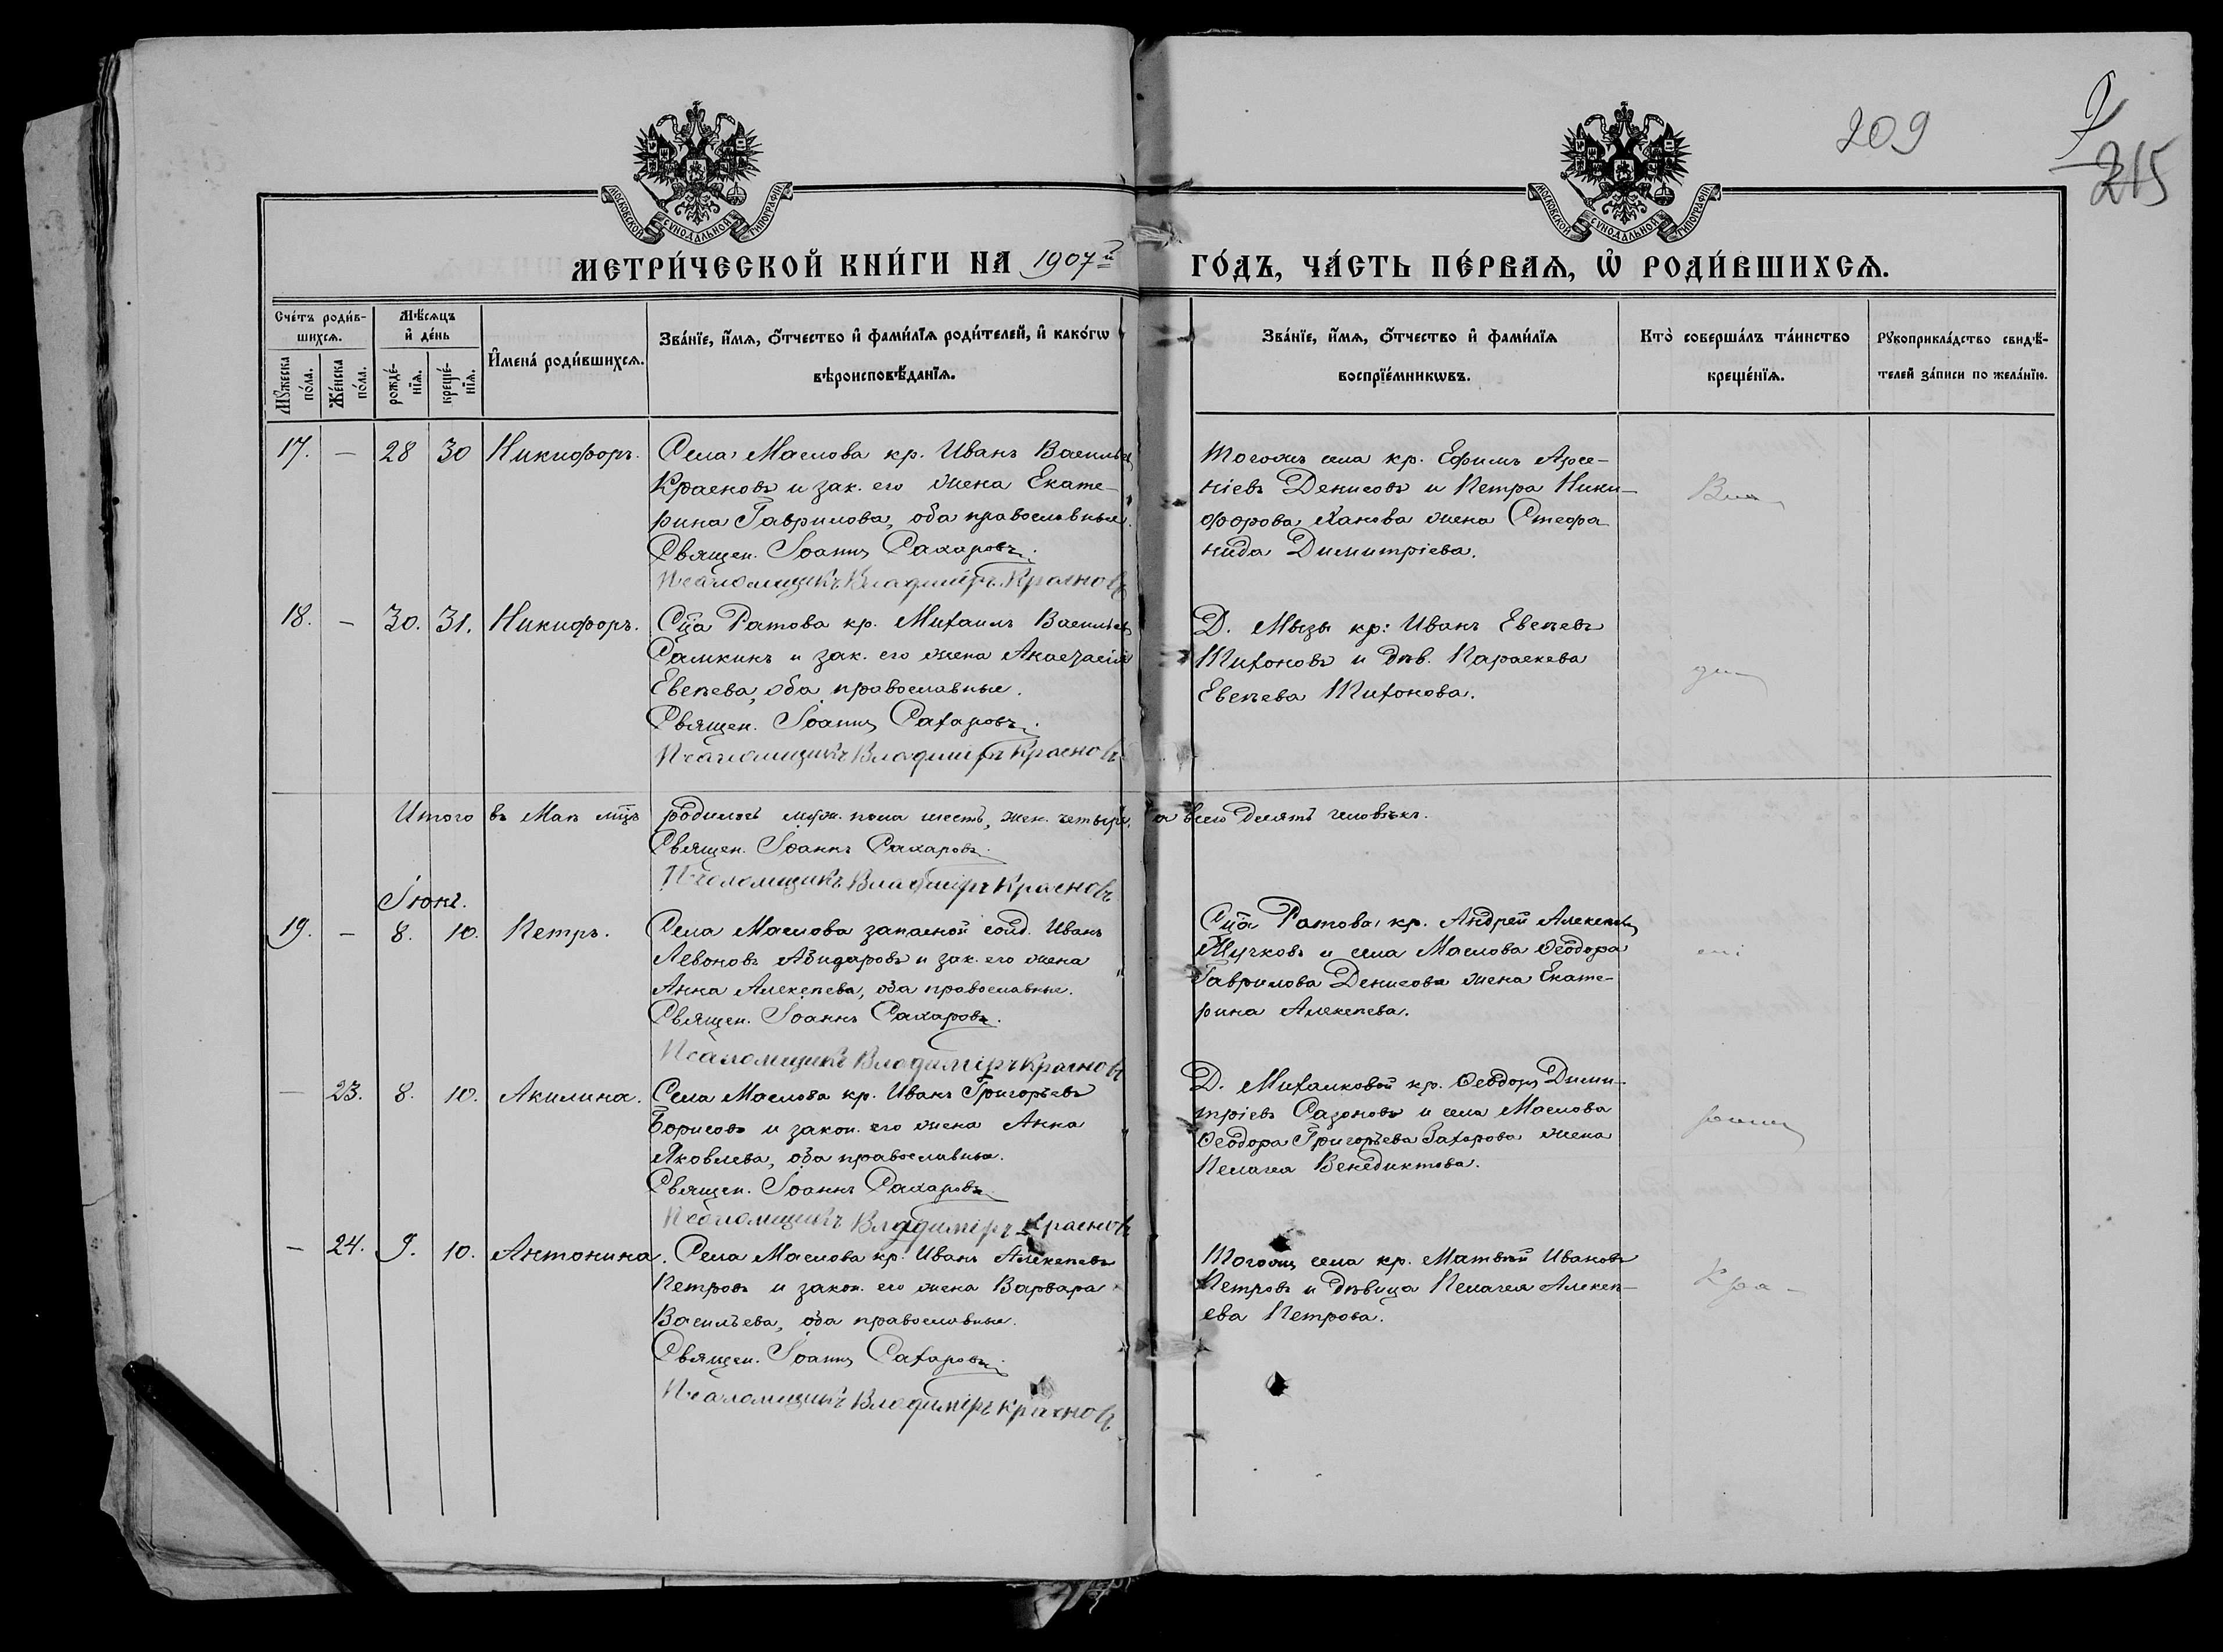 209
215
МОСКОВСКОЙ СѴНОДАЛЬНОЙ ТИПОГРАФІИ
МОСКОВСКОЙ СѴНОДАЛЬНОЙ ТИПОГРАФІИ
МЕТРИ́ЧЕСКОЙ КНИ́ГИ НА 1907й ГО́ДЪ, ЧА́СТЬ ПЕ́РВАѦ, Ѡ҆ РОДИ́ВШИХСѦ.
Сче́тъ роди́в-
шихсѧ.
Мꙋ́жеска
по́ла.
Же́нска
по́ла.
Мѣ́сѧцъ
и҆ де́нь
рожде́-
нїѧ.
креще́-
нїѧ.
И҆мена̀ роди́вшихсѧ.
Зва́нїе, и҆́мѧ, ѻ҆́тчество и҆ фами́лїѧ роди́телей, и҆ како́гѡ
вѣроисповѣ́данїѧ.
Зва́нїе, и҆́мѧ, ѻ҆́тчество и҆ фами́лїѧ
воспрїе́мникѡвъ.
Кто̀ соверша́лъ та́инство
креще́нїѧ.
Рꙋкоприкла́дство свидѣ́-
телей за́писи по жела́нїю.
17. — 28 30 Никифоръ.
Села Маслова кр. Иванъ Васильев
Красновъ и зак. его жена Екате-
рина Гаврилова, оба православные.
Священ. Іоаннъ Сахаровъ.
Псаломщикъ Владиміръ Красновъ
Тогожъ села кр. Ефимъ Арсе-
ніевъ Денисовъ и Петра Ники-
форова Ханова жена Стефа-
нида Димитріева.
18. — 30. 31. Никифоръ.
Сца Ратова кр. Михаилъ Васильев
Самкинъ и зак. его жена Анастасія
Евсѣева, оба православные.
Священ. Іоаннъ Сахаровъ.
Псаломщикъ Владиміръ Красновъ
Д. Мызы кр: Иванъ Евсѣевъ
Тихоновъ и дѣв. Параскева
Евсѣева Тихонова.
Итого въ Маѣ мцѣ родилось муж. пола шесть, жен. четыре, а всего десять человѣкъ.
Священ. Іоаннъ Сахаровъ.
Псаломщикъ Владиміръ Красновъ
Іюнь.
19. — 8. 10. Петръ.
Села Маслова запасной солд. Иванъ
Левоновъ и зак. его жена
Анна Алексѣева, оба православные.
Священ. Іоаннъ Сахаровъ.
Псаломщикъ Владиміръ Красновъ
Сца Ратова кр. Андрей Алексѣевъ
и села Маслова Ѳеодора
Гаврилова Денисова жена Екате-
рина Алексѣева.
— 23. 8. 10. Акилина.
Села Маслова кр. Иванъ Григорьевъ
Борисовъ и закон. его жена Анна
Яковлева, оба православные.
Священ. Іоаннъ Сахаровъ
Псаломщикъ Владиміръ Красновъ
Д. Михалковой кр. Ѳеодоръ Дими-
тріевъ Сазоновъ и села Маслова
Ѳеодора Григорьева Захарова жена
Пелагея Венедиктова.
— 24. 9. 10. Антонина.
Села Маслова кр. Иванъ Алексѣевъ
Петровъ и закон. его жена Варвара
Васильева, оба православные.
Священ. Іоаннъ Сахаровъ.
Псаломщикъ Владиміръ Красновъ
Тогожъ села кр. Матвѣй Ивановъ
Петровъ и дѣвица Пелагея Алексѣ-
ева Петрова.